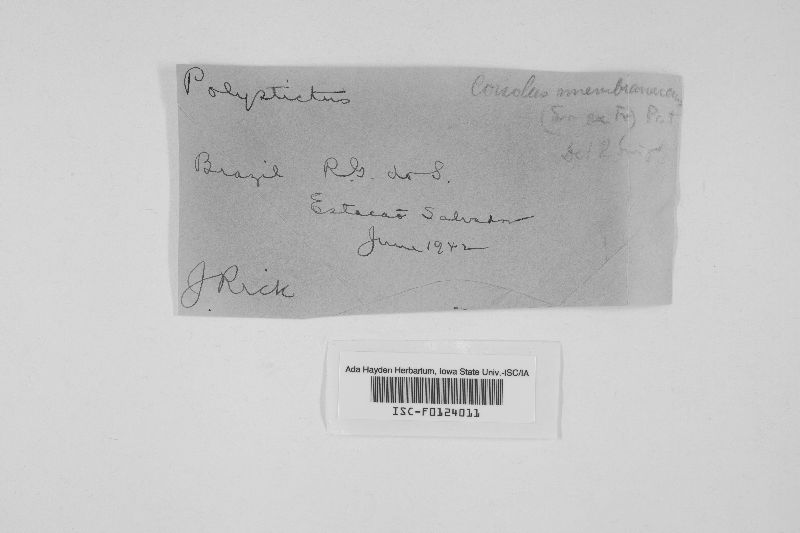 Polystictus
Coriolus membranaceus
(Sw ex Fr) Pat
Det R
Brazil R.G. do S.
Estacaõ Salvador
June 1942
J Rick
Ada Hayden Herbarium, Iowa State Univ.-ISC/IA
ISC-F0124011